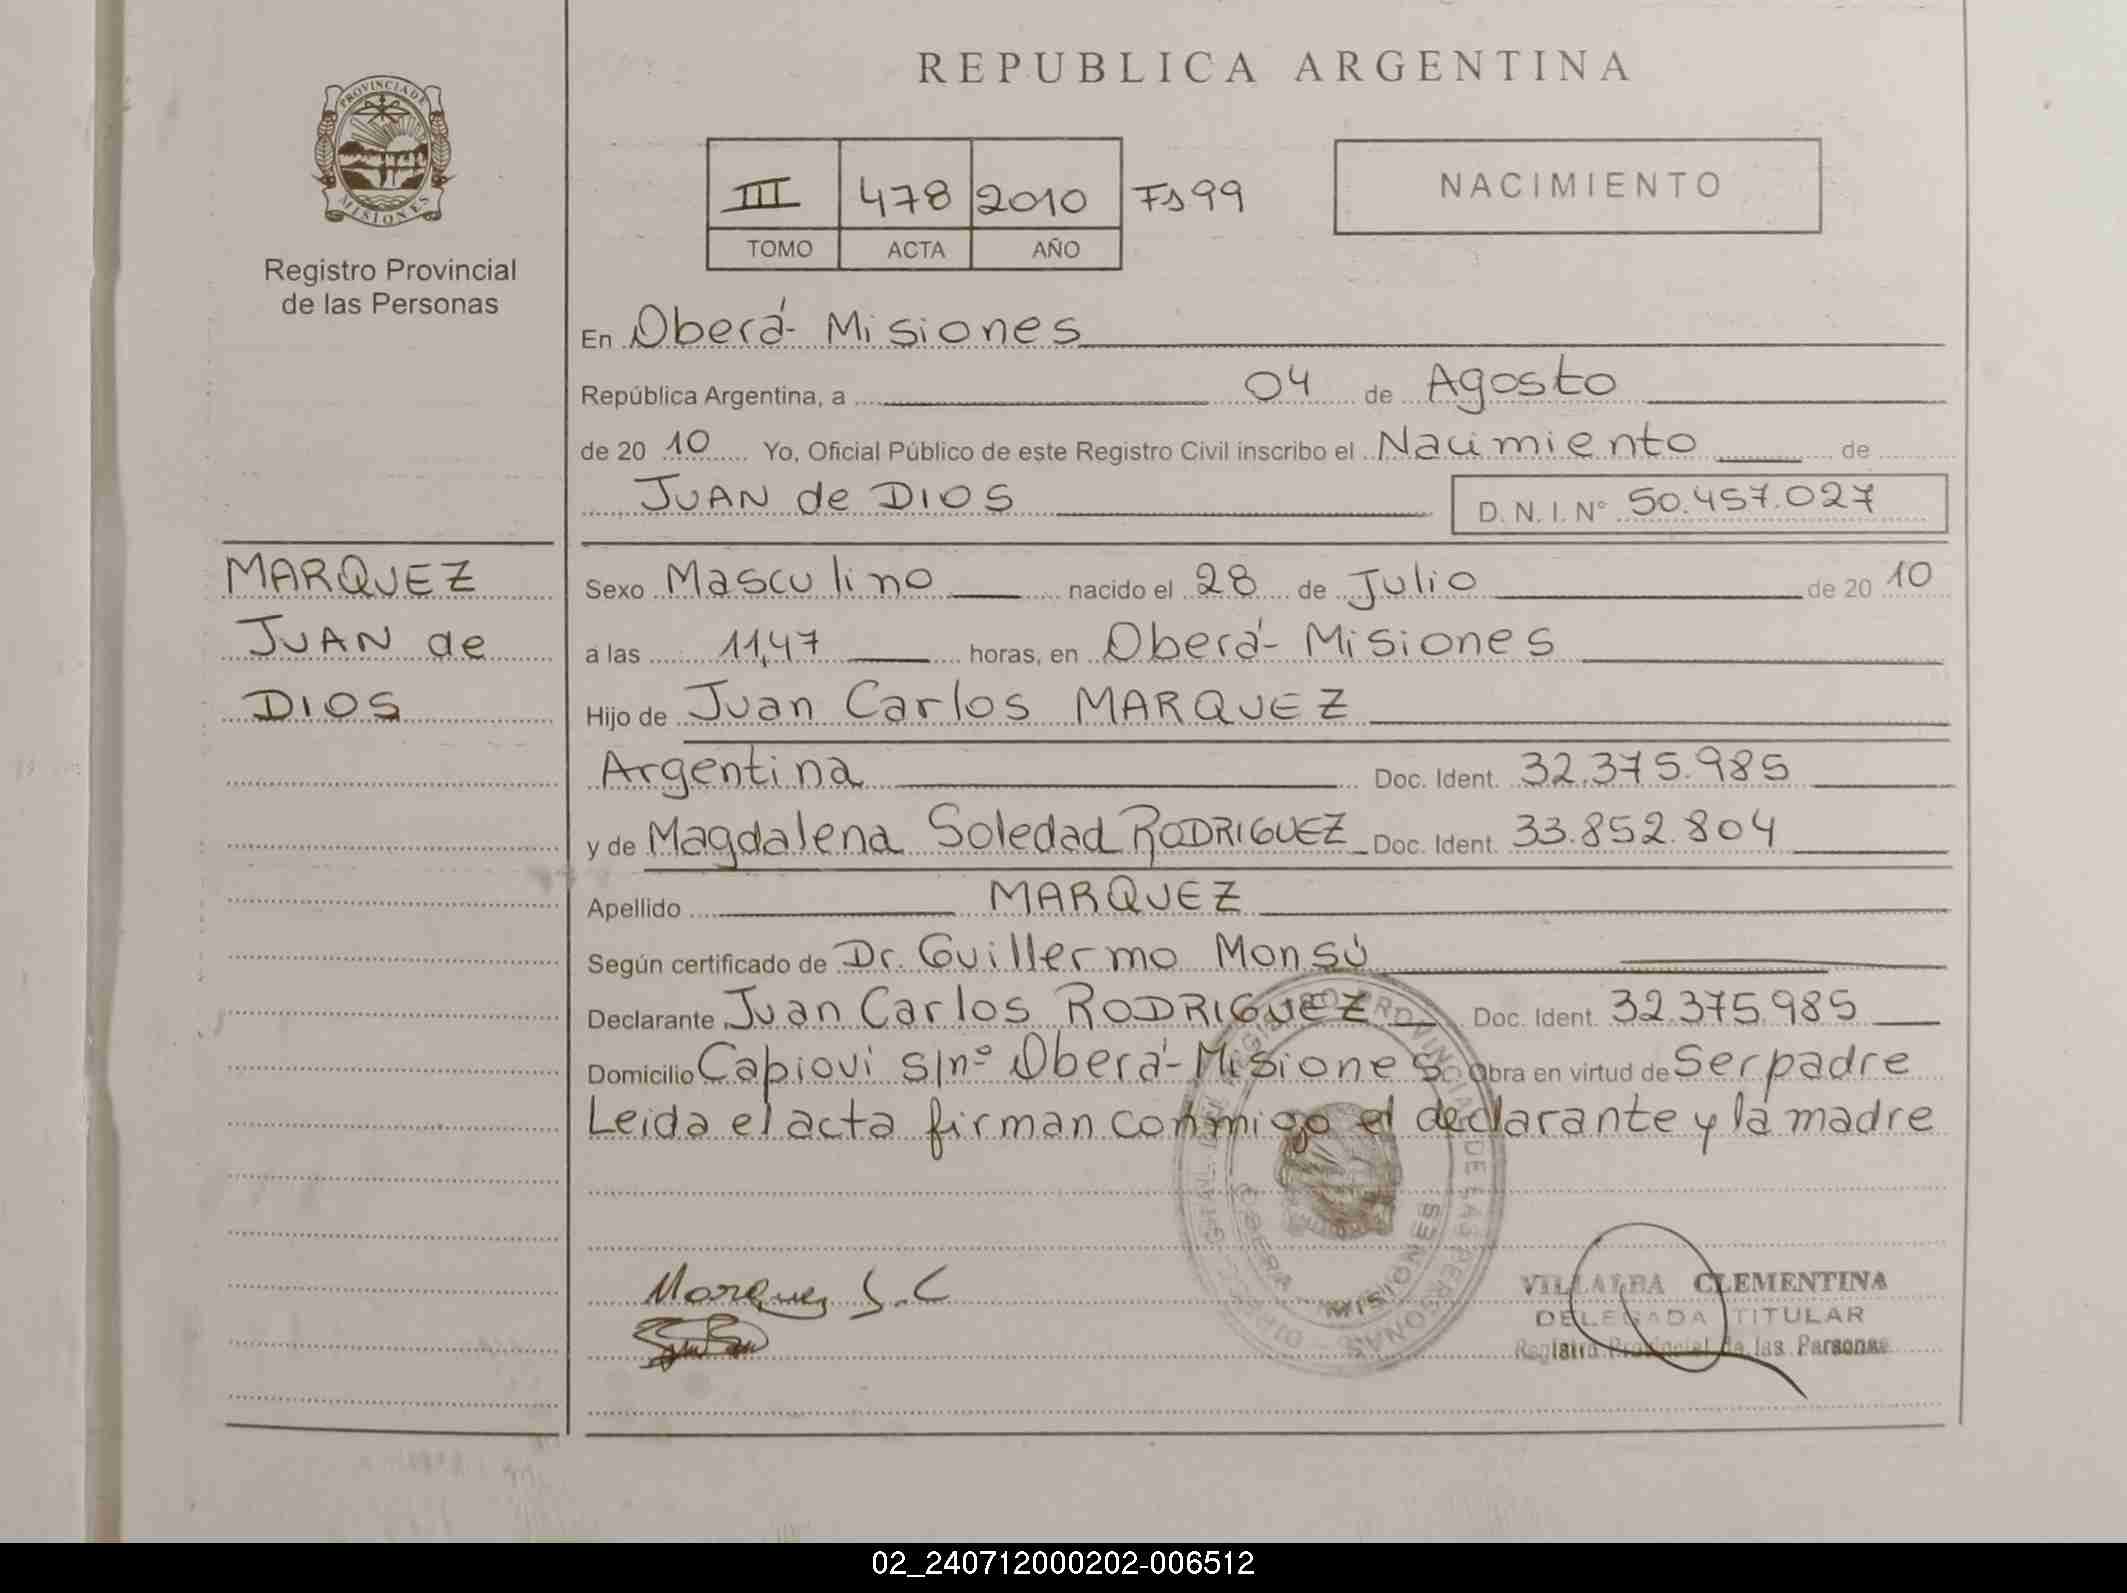 REPUBLICA ARGENTINA
PROVINCIA DE
MISIONES
Registro Provincial
de las Personas
III 478 2010 Fs 99
TOMO ACTA AÑO
NACIMIENTO
En Oberá- Misiones
República Argentina, a 04 de Agosto
de 20 10 Yo, Oficial Público de este Registro Civil inscribo el Nacimiento de
JUAN de DIOS D. N. I. N° 50.457.027
MARQUEZ
JUAN de
DIOS
Sexo Masculino nacido el 28 de Julio de 20 10
a las 11,47 horas, en Oberá- Misiones
Hijo de Juan Carlos MARQUEZ
Argentina Doc. Ident. 32.375.985
y de Magdalena Soledad RODRIGUEZ Doc. Ident. 33.852.804
Apellido MARQUEZ
Según certificado de Dr. Guillermo Monsú
Declarante Juan Carlos RODRIGUEZ Doc. Ident. 32.375.985
Domicilio Capioví s/nº Oberá-Misiones Obra en virtud de Ser padre
Leida el acta firman conmigo el declarante y la madre
Marquez J.C
VILLALBA CLEMENTINA
DELEGADA TITULAR
Registro Provincial de las Personas
REGISTRO PROVINCIAL DE LAS PERSONAS
OBERA - MISIONES
02_240712000202-006512